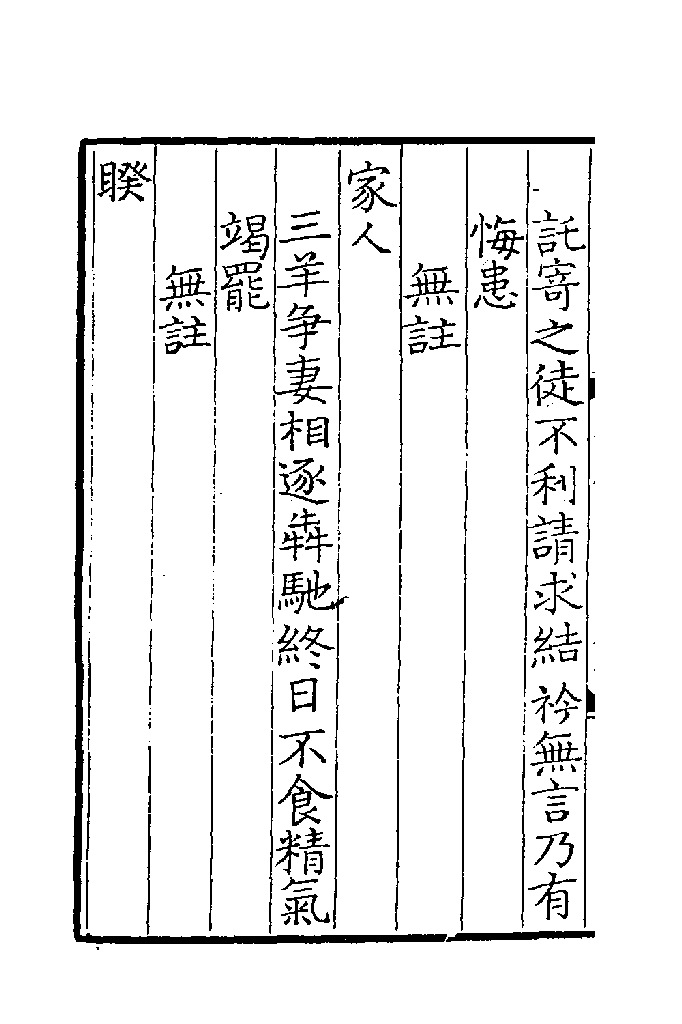 託寄之徒不利請求結衿無言乃有
悔患
無註
家人
三羊争妻相逐犇馳終日不食精氣
竭罷
無註
睽